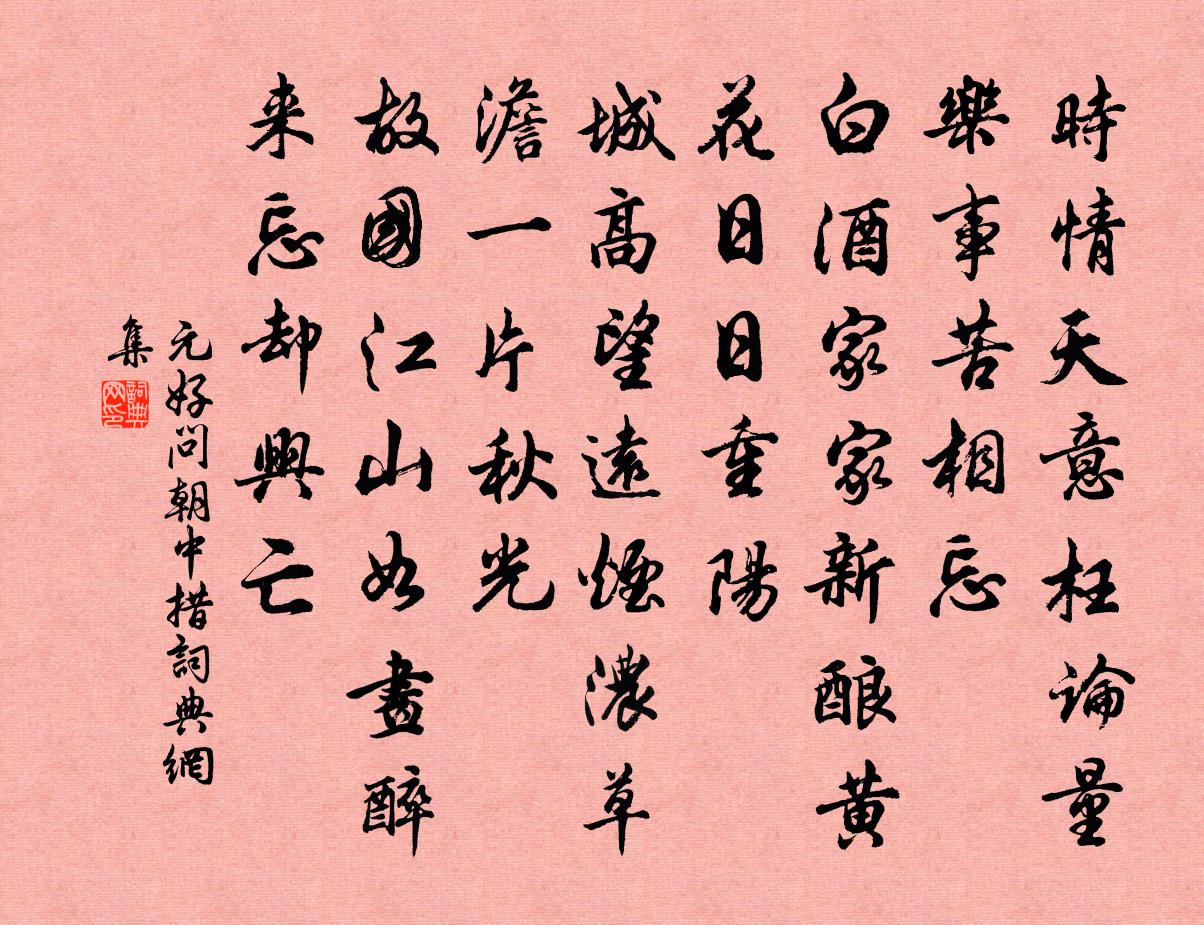 時情天意枉論量
樂事苦相忘
白酒家家新酿黄
花日日重陽
城高望遠煙濃草
澹一片秋光
故國江山如畫醉
来忘却興亡
元好問朝中措詞典網
集
詞典网印